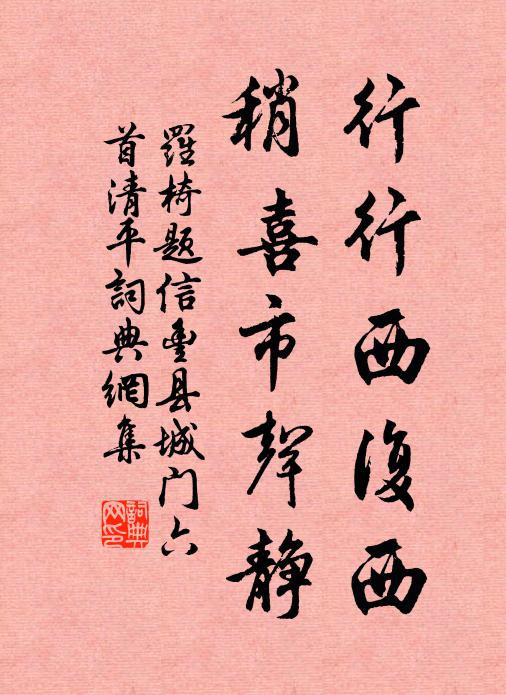 行行西復西
稍喜市聲静
羅椅题信豊县城门六
首清平詞典網集
詞典
网印